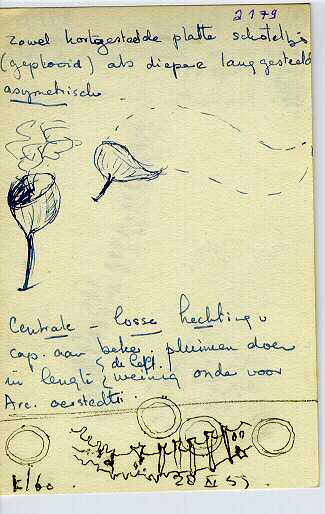 2179
zowel kortgesteelde platte schoteltjes
(geplooid) als diepere langgesteelde
asymetrische
Centrale - losse hechting v
cap. aan beker. pluimen doen
in lengte de helft.
weinig onder voor
Arc. oerstedtii.
K/60. 28 XI 59.